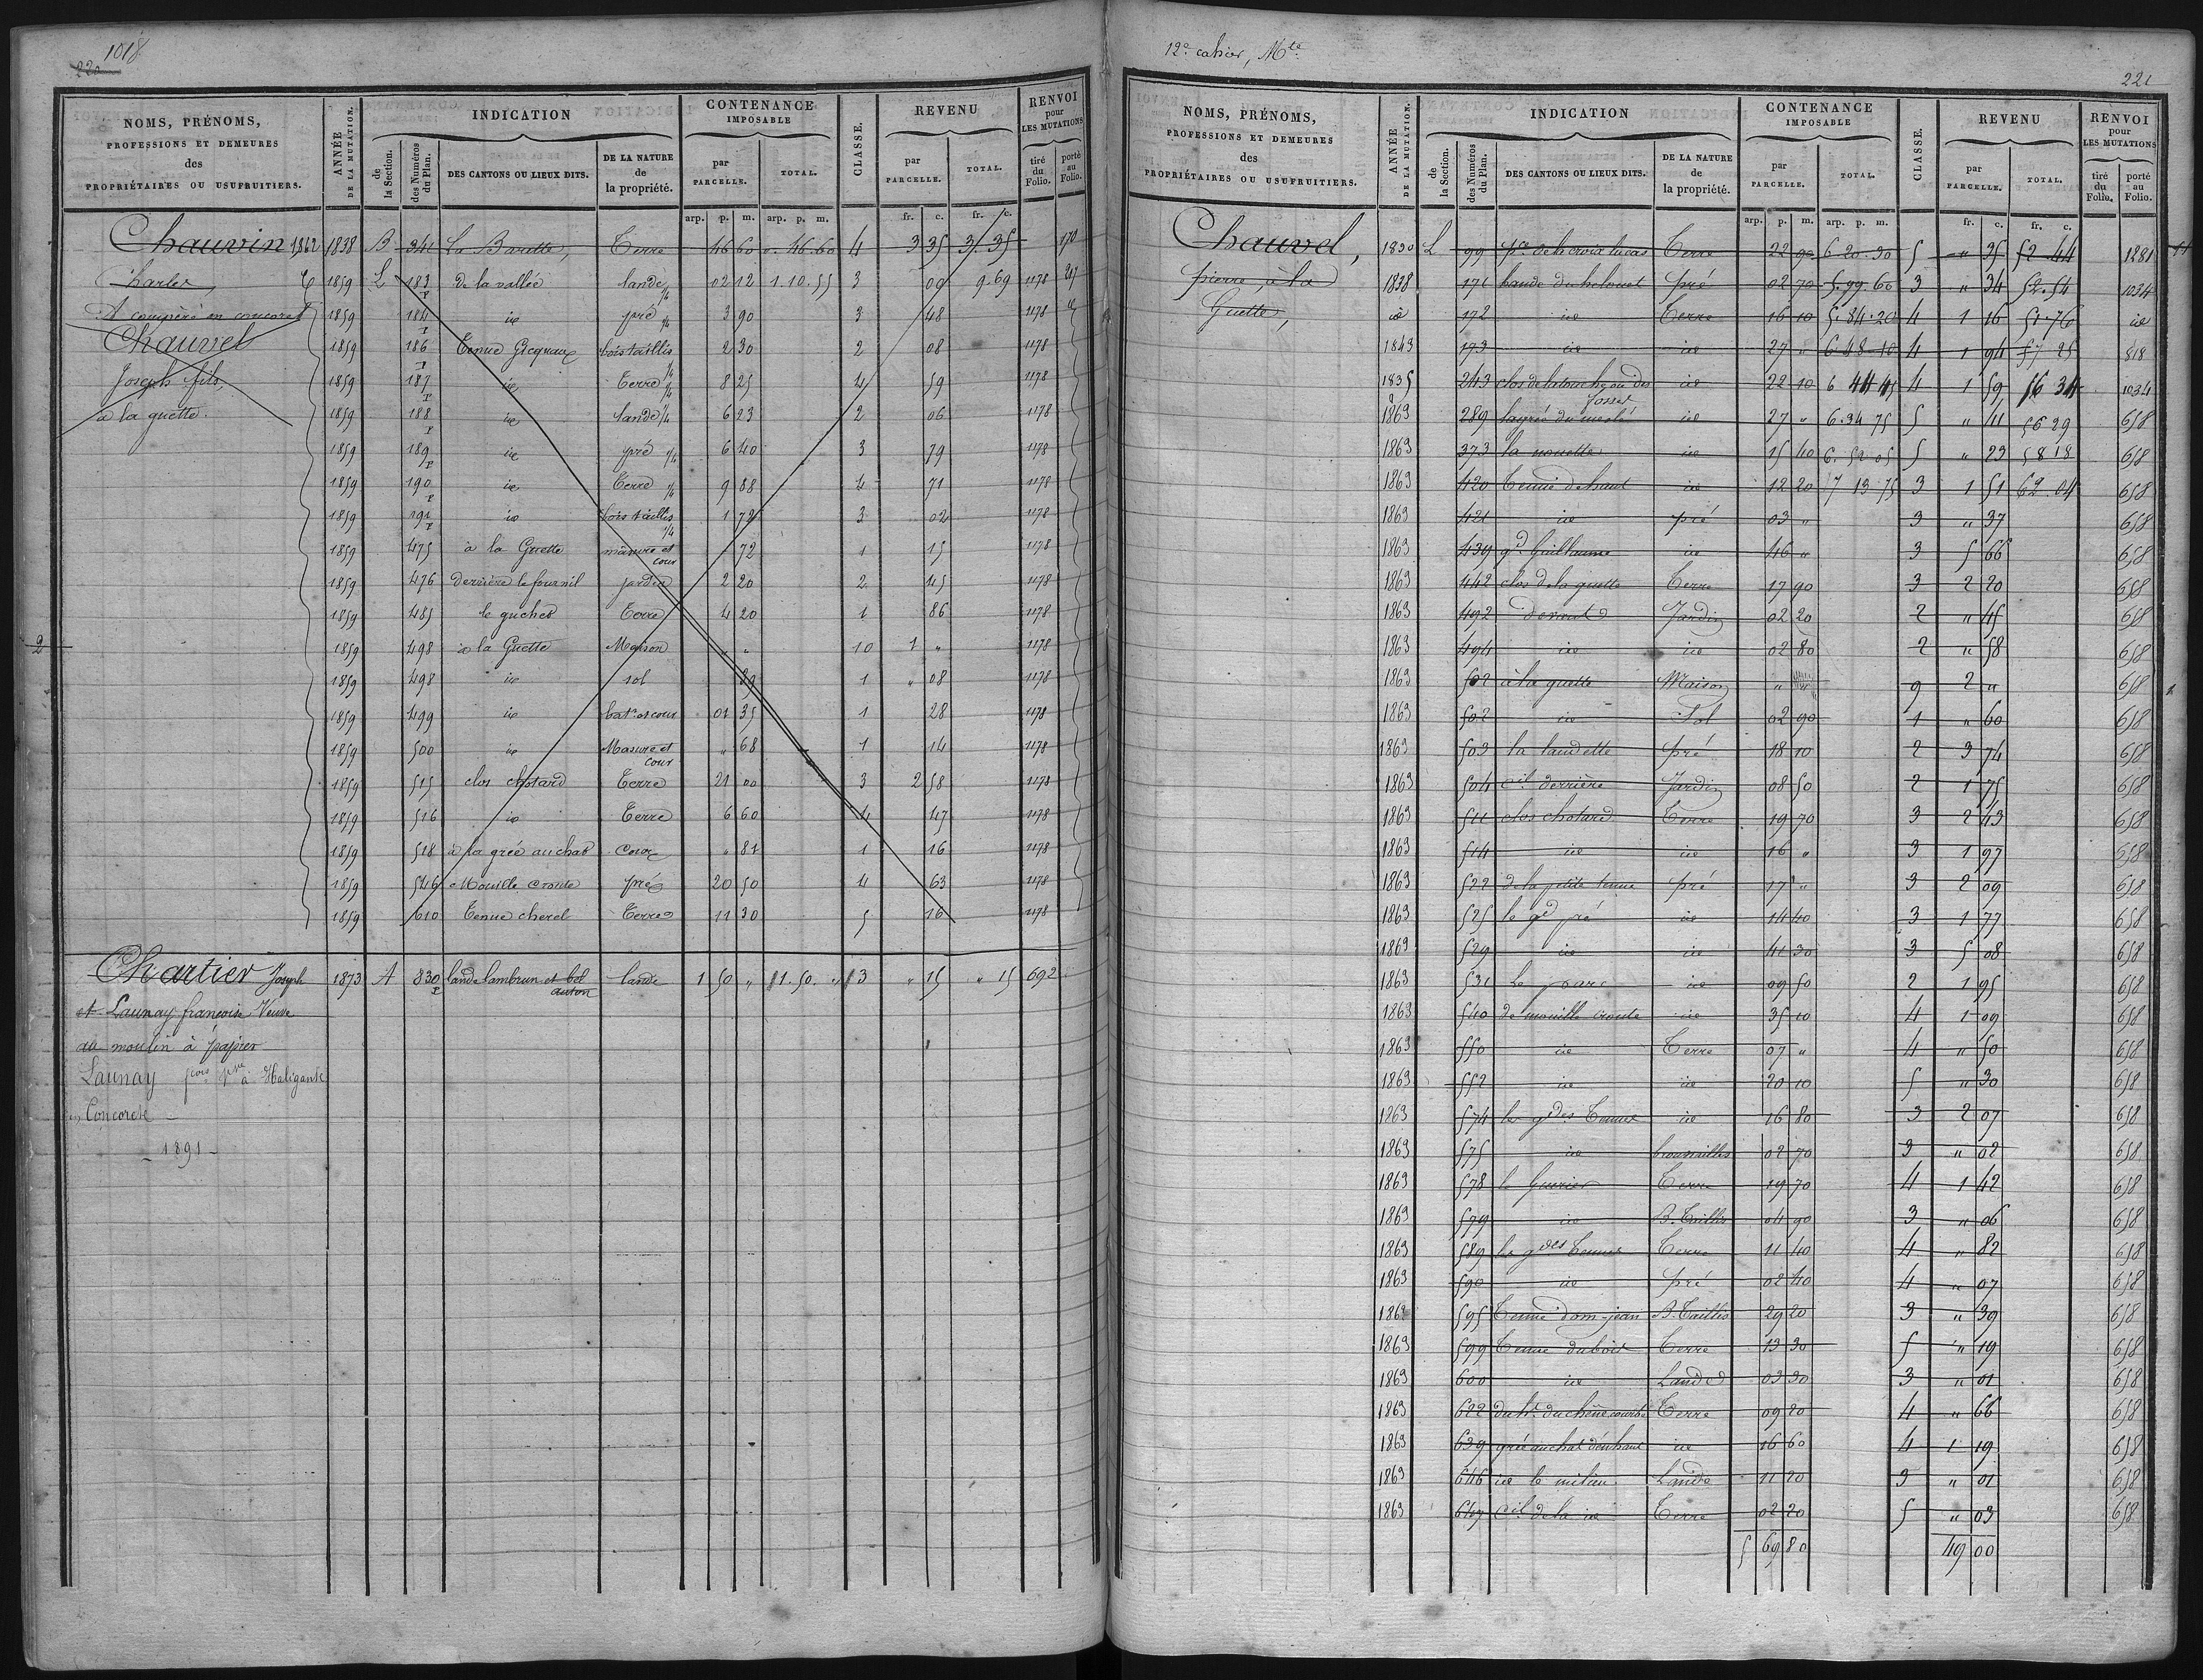 1018
220
NOMS, PRÉNOMS, PROFESSIONS ET DEMEURES des PROPRIÉTAIRES OU USUFRUITIERS.
ANNÉE DE LA MUTATION.
INDICATION
de la Section.
des Numéros du Plan.
DES CANTONS OU LIEUX DITS.
DE LA NATURE de la propriété.
CONTENANCE IMPOSABLE
par PARCELLE.
TOTAL.
CLASSE.
REVENU
par PARCELLE.
TOTAL.
RENVOI pour LES MUTATIONS
tiré du Folio.
porté au Folio.
arp. p. m. arp. p. m. fr. c. fr. c.
Chauvin 1862 1838 B 341 La Barette, Terre 46 60 0.46.60 4 3 35 3.35 170
Charles 1859 L 183 P de la vallée lande 1/4 02 12 1.10.55 3 00 9.69 1178
A compère en concoret 1859 184 P id pré 1/4 3 90 3 48 1178
Chauvel 1859 186 P Tenue Gicquaux bois taillis 2 30 2 08 1178
Joseph fils, 1859 187 P id Terre 1/4 8 25 4 59 1178
à la guette. 1859 188 P id lande 1/4 6 23 2 06 1178
1859 189 P id pré 1/4 6 40 3 79 1178
1859 190 P id Terre 1/4 9 88 4 71 1178
1859 191 P id bois taillis 1/4 1 72 3 02 1178
1859 475 à la Guette masure et cour 72 1 15 1178
1859 476 derrière le fournil jardin 2 20 2 45 1178
1859 485 le guchet Terre 4 20 1 86 1178
1859 498 à la Guette Maison " " 10 1 " 1178
1859 498 id sol 39 1 " 08 1178
1859 499 id bat. et cour 01 35 1 28 1178
1859 500 id Masure et cour " 68 1 14 1178
1859 515 clos chotard Terre 21 00 3 2 58 1178
1859 516 id Terre 6 60 4 47 1178
1859 518 à la grée au chat Cour " 81 1 16 1178
1859 546 Mouille croute pré 20 50 4 63 1178
1859 610 Tenue cherel Terre 11 30 5 16 1178
Chartier Joseph 1873 A 830 P lande lambrun et bel auton lande 1 50 " 1.50." 3 " 15 " 15 692
et Launay françoise Veuve
au moulin à papier
Launay fcois pre à Haligant
en Concoret
- 1891 -
12e cahier, Mte
221
NOMS, PRÉNOMS, PROFESSIONS ET DEMEURES des PROPRIÉTAIRES OU USUFRUITIERS.
ANNÉE DE LA MUTATION.
INDICATION
de la Section.
des Numéros du Plan.
DES CANTONS OU LIEUX DITS.
DE LA NATURE de la propriété.
CONTENANCE IMPOSABLE
par PARCELLE.
TOTAL.
CLASSE.
REVENU
par PARCELLE.
TOTAL.
RENVOI pour LES MUTATIONS
tiré du Folio.
porté au Folio.
arp. p. m. arp. p. m. fr. c. fr. c.
Chauvel, 1830 L 99 pce de la croix lucas Terre 22 90 6 20 30 5 " 35 52 44 1281
pierre, à la 1838 171 bande du pré 02 70 5.99.60 3 " 34 52.54 1034
Guette, id 172 id Terre 16 10 5.84.20 4 1 16 51.76 id
1843 173 id id 27 " 6 48 10 4 1 94 57 25 518
1835 243 clos de la touche ou des fosses id 22 10 6 44 45 4 1 59 56 34 1034
1863 289 lagrée du meslé id 27 " 6.34 75 5 " 41 56 29 658
1863 373 la nouette id 15 40 6.52 05 5 " 23 58 18 658
1863 420 Tenue de haut id 12 20 7 13 75 3 1 51 62.04 658
1863 421 id pré 03 " 3 " 37 658
1863 439 gd Guillaume id 46 " 3 5 66 658
1863 442 clos de la guette Terre 17 90 3 2 20 658
1863 492 devant Jardin 02 20 2 " 45 658
1863 494 id id 02 80 2 " 58 658
1863 502 à la guette Maison " 9 2 " 658
1863 502 id Sol 02 90 1 " 60 658
1863 503 la landette pré 18 10 2 3 74 658
1863 504 cil derrière Jardin 08 50 2 1 75 658
1863 511 clos chotard Terre 19 70 3 2 43 658
1863 514 id id 16 " 3 1 97 658
1863 522 de la petite tenue pré 17 " 3 2 09 658
1863 525 le gd pré id 14 40 3 1 77 658
1863 529 id id 41 30 3 5 08 658
1863 531 Le parc id 09 50 2 1 95 658
1863 540 de mouille croute id 35 10 4 1 09 658
1863 550 id Terre 07 " 4 " 50 658
1863 552 id id 20 10 5 " 30 658
1863 574 le gdes Tenues id 16 80 3 2 07 658
1863 575 id broussailles 02 70 3 " 02 658
1863 578 le Guerier Terre 19 70 4 1 42 658
1863 579 id B. Taillis 04 90 3 " 06 658
1863 589 les gdes Tenues Terre 11 40 4 " 82 658
1863 590 id pré 02 40 4 " 07 658
1863 595 Tenue dom-jean B. Taillis 29 20 3 " 39 658
1863 599 Tenue dubois Terre 13 30 5 " 19 658
1863 600 id Lande 03 30 3 " 01 658
1863 622 du ht du chêne courbe Terre 09 20 4 " 66 658
1863 639 grée au chat d'en haut id 16 60 4 1 19 658
1863 646 id le milieu Lande 11 20 3 " 01 658
1863 647 cil de la id Terre 02 20 5 " 03 658
5 69 80 49 00